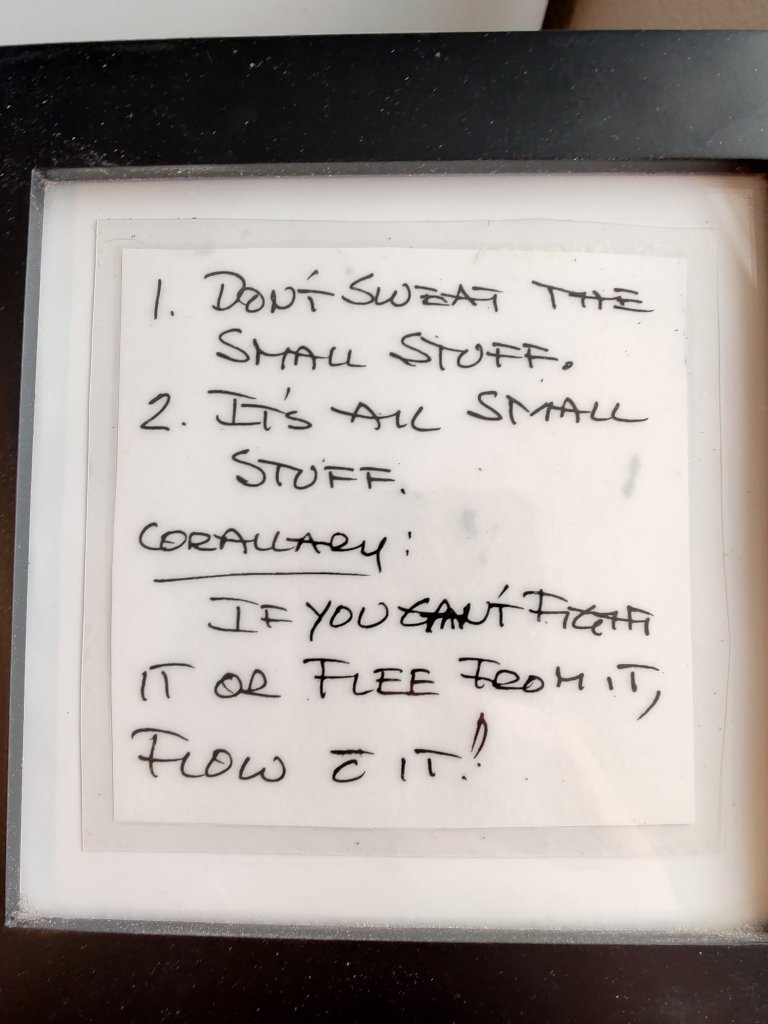 1. DON'T SWEAT THE
SMALL STUFF.
2. IT'S ALL SMALL
STUFF.
CORALLARY:
IF YOU CAN'T FIGHT
IT OR FLEE FROM IT,
FLOW c̄ IT!